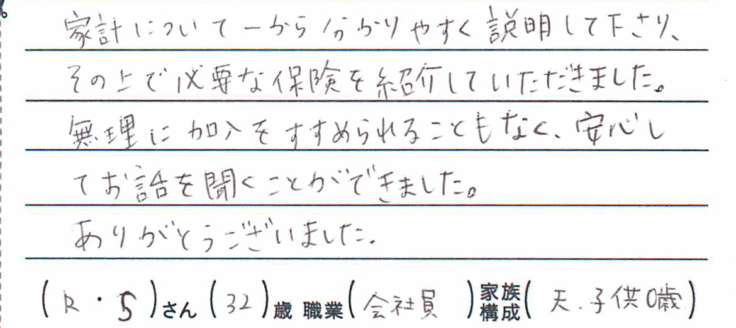 家計について一から分かりやすく説明して下さり、
その上で必要な保険を紹介していただきました。
無理に加入をすすめられることもなく、安心し
てお話を聞くことができました。
ありがとうございました。
(R・S)さん(32)歳 職業(会社員)家族構成(夫.子供0歳)